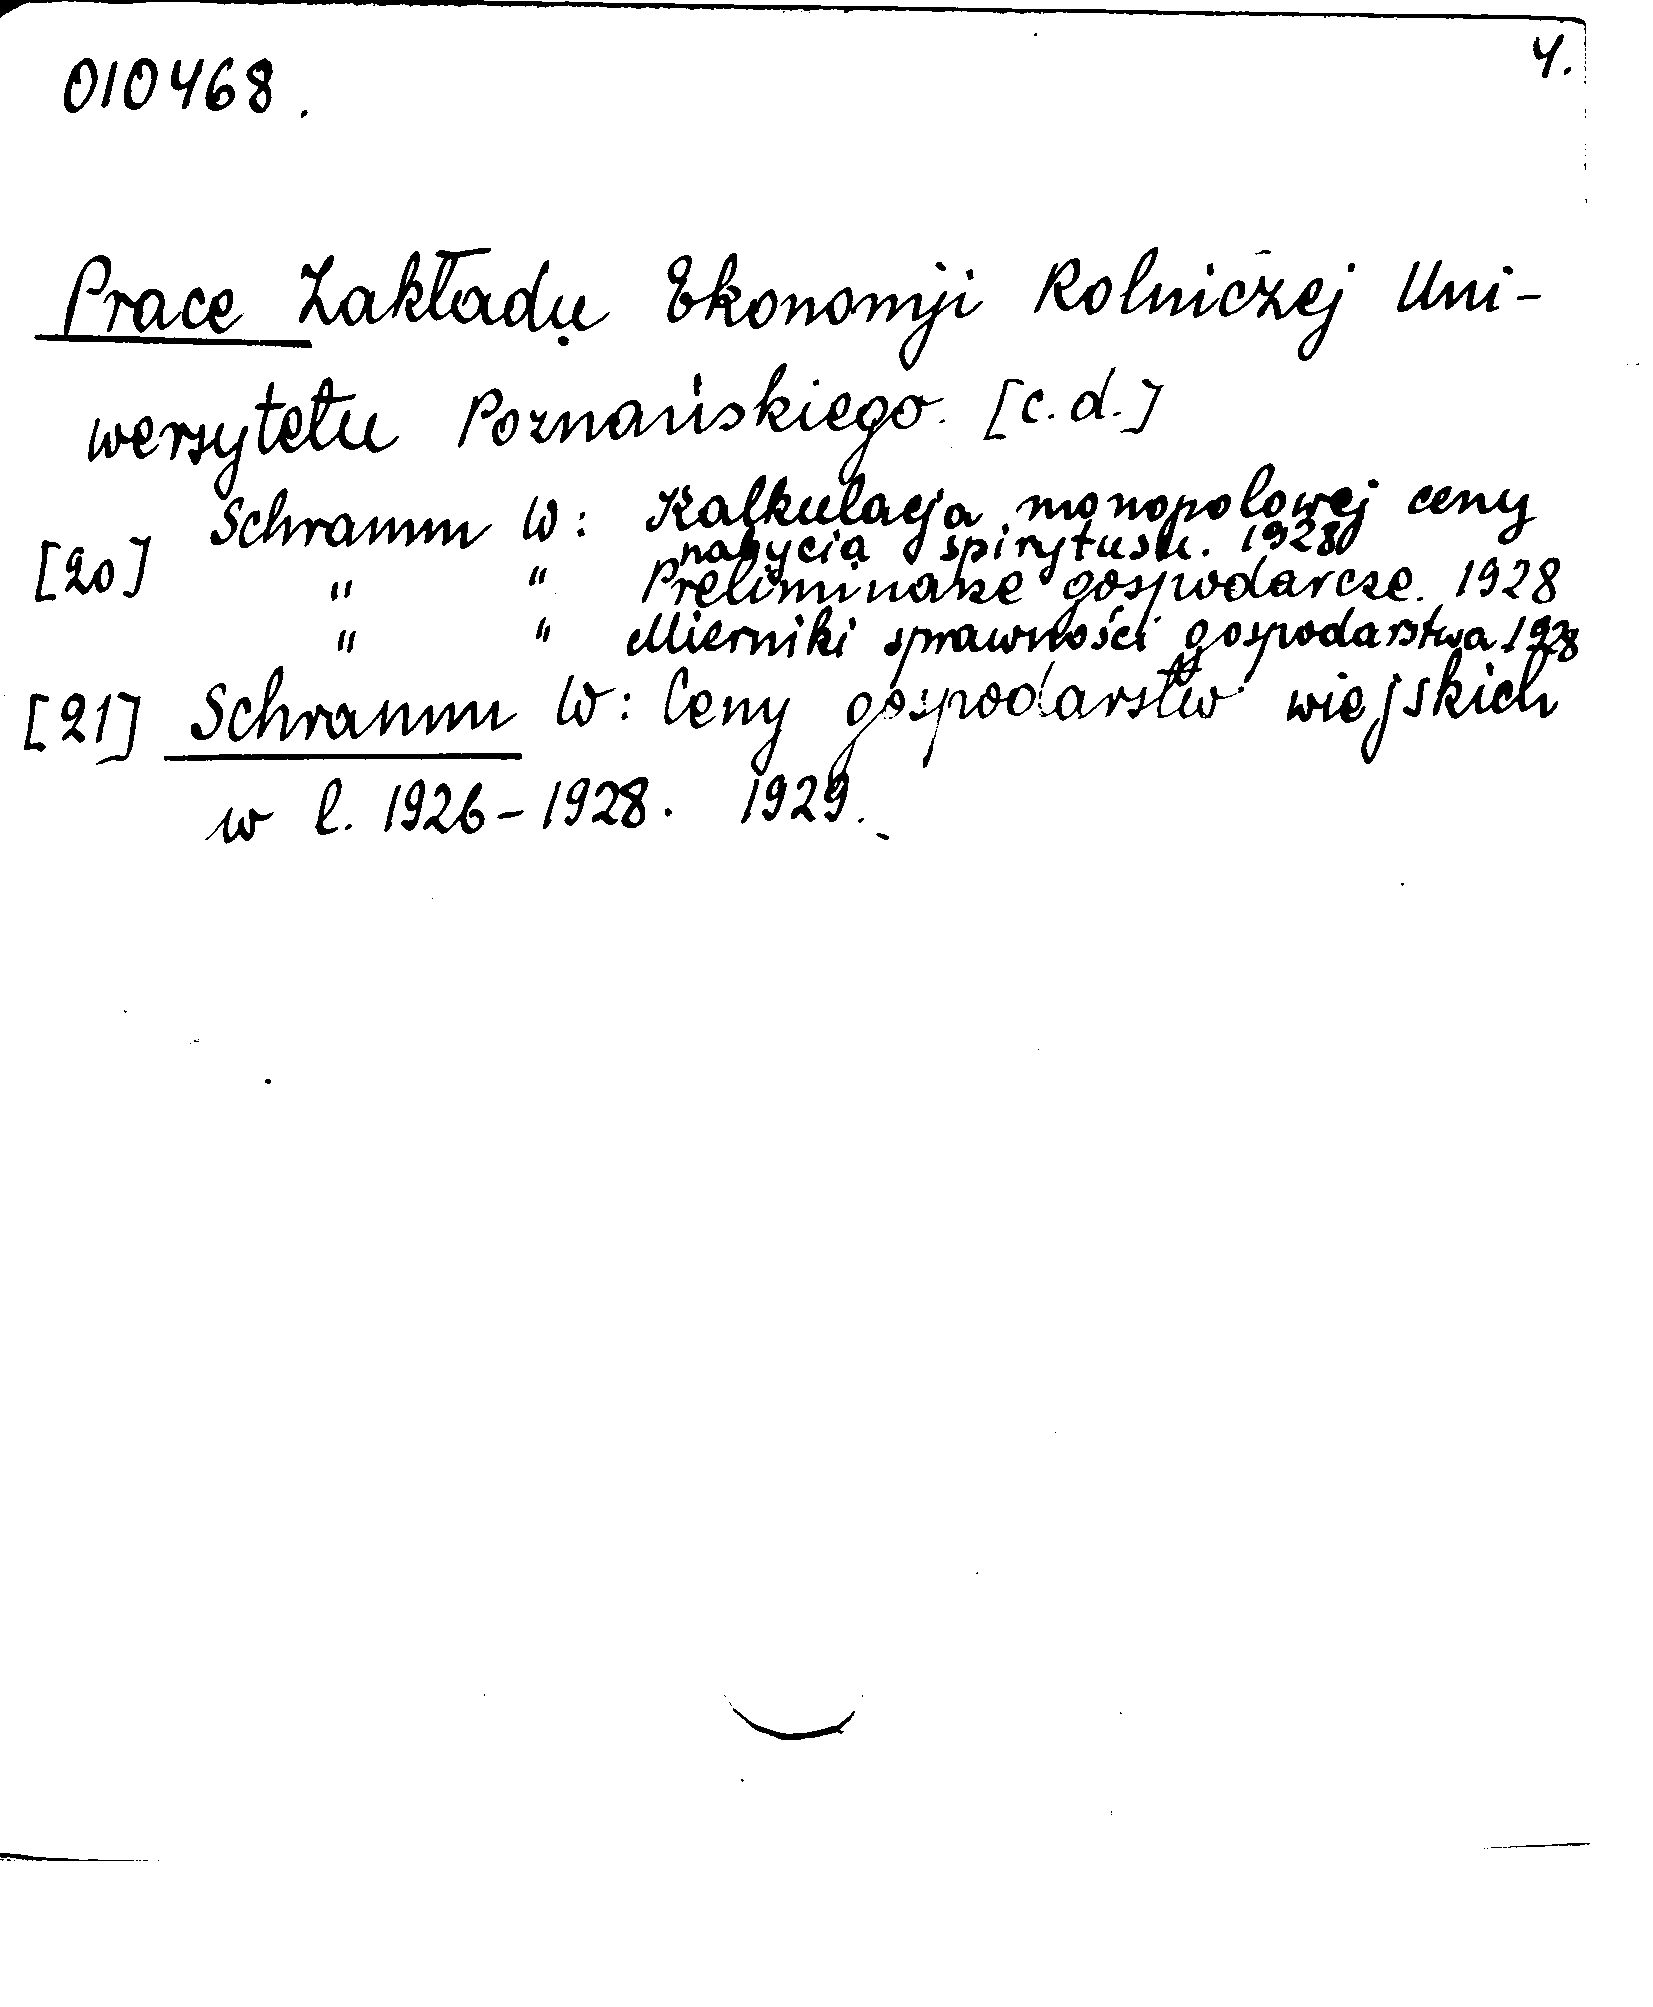 010468.
4.
Prace Zakładu Ekonomji Rolniczej Uni-
wersytetu Poznańskiego. [c.d.]
Schramm W: Kalkulacja monopolowej ceny
nabycia spirytusu. 1928
[20] " " Preliminarze gospodarcze. 1928
" " Mierniki sprawności gospodarstwa 1928
[21] Schramm W: Ceny gospodarstw wiejskich
w l. 1926-1928. 1929.